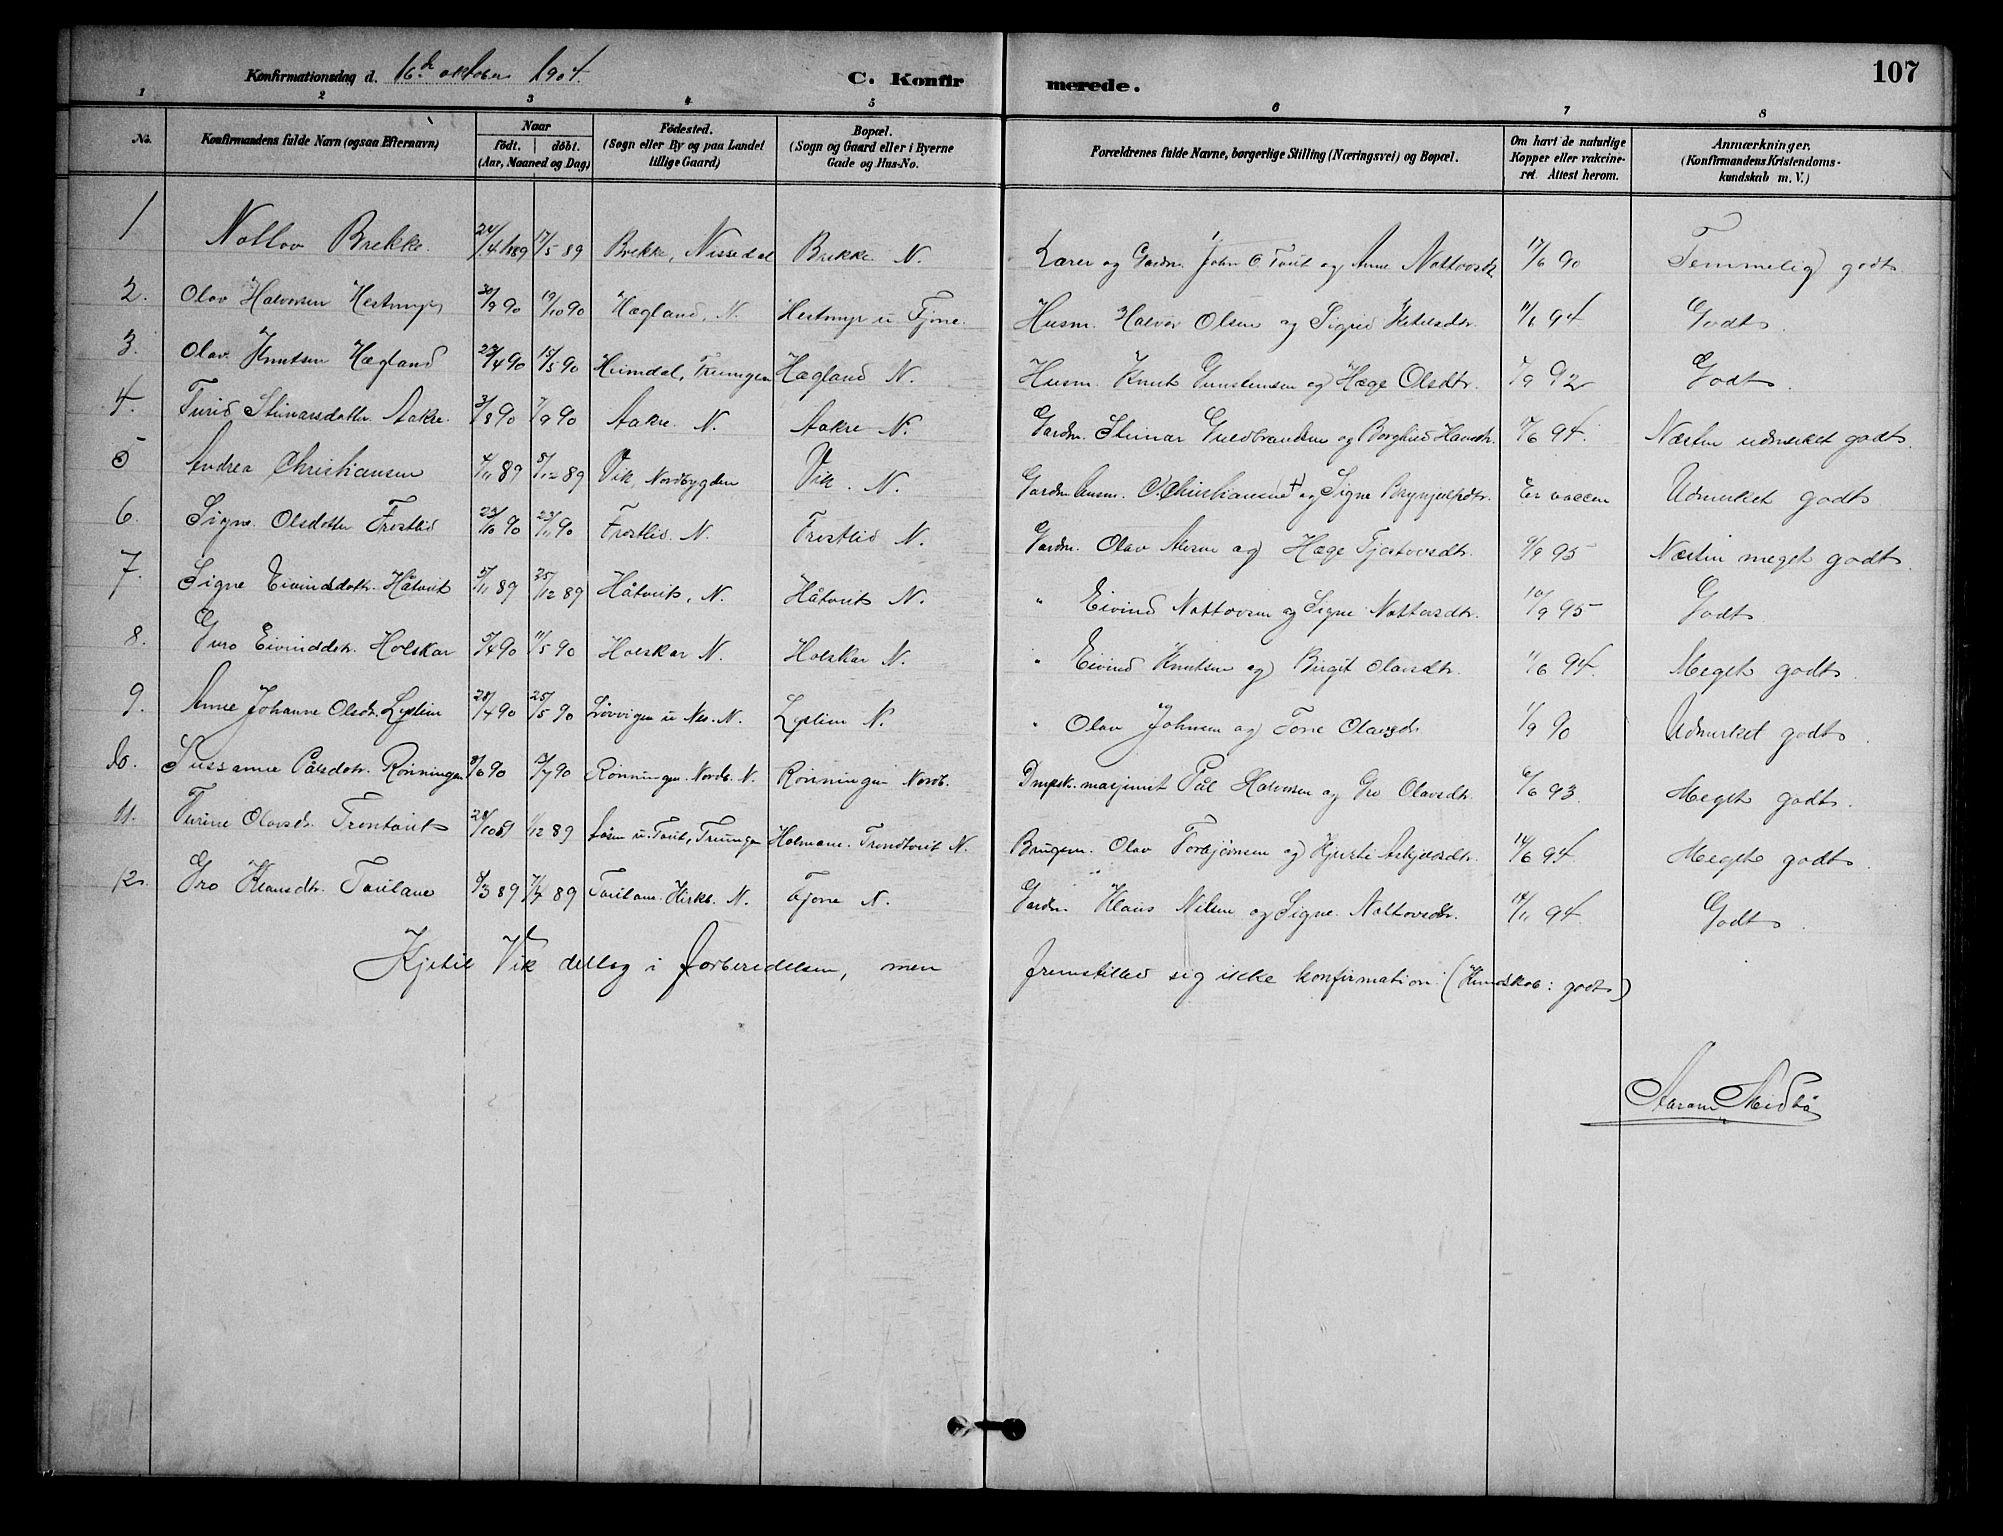 Konfirmationsdag d. 16de oktober 1904. C. Konfirmerede. 107
1 2 3 4 5 6 7 8
No. Konfirmandens fulde Navn (ogsaa Efternavn) Naar født. døbt. (Aar, Maaned og Dag) Fødested. (Sogn eller By og paa Landet tillige Gaard) Bopæl. (Sogn og Gaard eller i Byerne Gade og Hus-No. Forældrenes fulde Navne, borgerlige Stilling (Næringsvei) og Bopæl. Om havt de naturlige Kopper eller vaccineret. Attest herom. Anmærkninger. (Konfirmandens Kristendomskundskab m. V.)
1 Nottov Brekke. 24/4 1889 17/5 89 Brekke, Nissedal Brekke N. Lærer og Gardm. John O Tveit og Anne Nottovsdtr 17/6 90 Temmelig godt
2. Olav Halvorsen Hestmyr 30/9 90 19/10 90 Hægland, N. Hestmyr u. Fjone. Husm. Halvor Olsen og Sigrid Ketilsdtr. 11/6 94 Godt.
3. Olav Knutsen Hægland 23/4 90 15/5 90 Heimdal, Treungen Hægland N. Husm. Knut Gunstensen og Hæge Olsdtr. 7/9 92 Godt.
4. Turid Steinarsdotter Aakre. 3/8 90 7/9 90 Aakre. N. Aakre N. Gardm. Steinar Guldbrandsen og Borghild Hansdtr. 17/6 94. Næsten udmerket godt.
5 Andrea Christiansen 4/11 89 8/12 89 Vik, Nordbygden Vik. N. Gardm O. Christiansen † og Signe Brynjulfsdtr. Er vaccin Udmerket godt.
6. Signe Olsdotter Frostlid 22/10 90 23/11 90 Frostlid. N. Frostlid N. Gardm. Olav og Hæge Tjostovsdtr. 9/9 95 Næsten meget godt.
7. Signe Eivindsdotr. Håtveit 5/11 89 25/12 89 Håtveit, N. Håtveit N. " Eivind Nottovsen og Signe Nottovsdtr. 10/9 95 Godt.
8. Guro Eivinddtr. Holskar 5/4 90 11/5 90 Holskar N. Holskar N. " Eivind Knutsen og Birgit Olavsdtr. 11/6 94. Meget godt.
9. Anne Johanne Olsdtr. Lyslim 28/4 90 25/5 90 Løvvigen u Nes. N. Lyslim N. " Olav Johnsen og Tone Olavsdtr 1/9 90 Udmerket godt.
10. Sussanne Pålsdotr. Rønningen 8/6 90 13/7 90 Rønningen. Nordb. N. Rønningen Nordb. Dmpsk. masjinist Pål Halvorsen og Gro Olavsdtr. 6/6 93. Meget godt.
11. Turine Olavsdr. Trontveit 28/10 89 1/12 89 Tveit, Treungen Holmane. Trondtveit N. Brugsm. Olav Torbjørnsen og Kjersti Askjelsdtr. 14/6 94. Meget godt.
12. Gro Klausdtr. Tveitane 9/3 89 7/4 89 Tveitane. Kirkb. N. Fjone N. Gardm. Klaus Nilsen og Signe Nottovsdtr. 14/11 94 Godt.
Kjetil Vik deltog i forberedelsen, men fremstilled sig ikke konfirmation. (Kundskab: godt)
Aaram Midbø